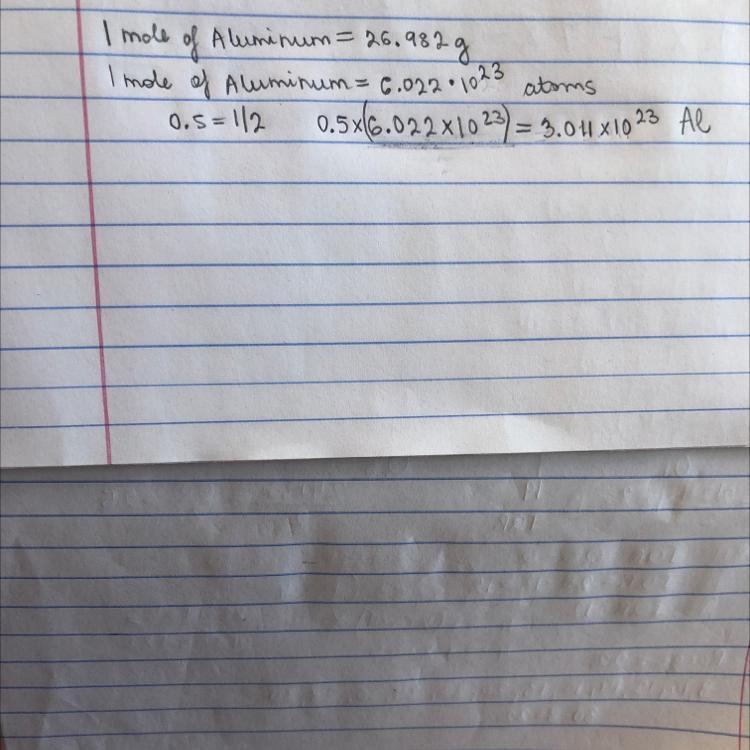 1 mole of Aluminum = 26.982 g
1 mole of Aluminum = 6.022 · 10²³ atoms
0.5 = 1/2 0.5×(6.022×10²³) = 3.011×10²³ Al